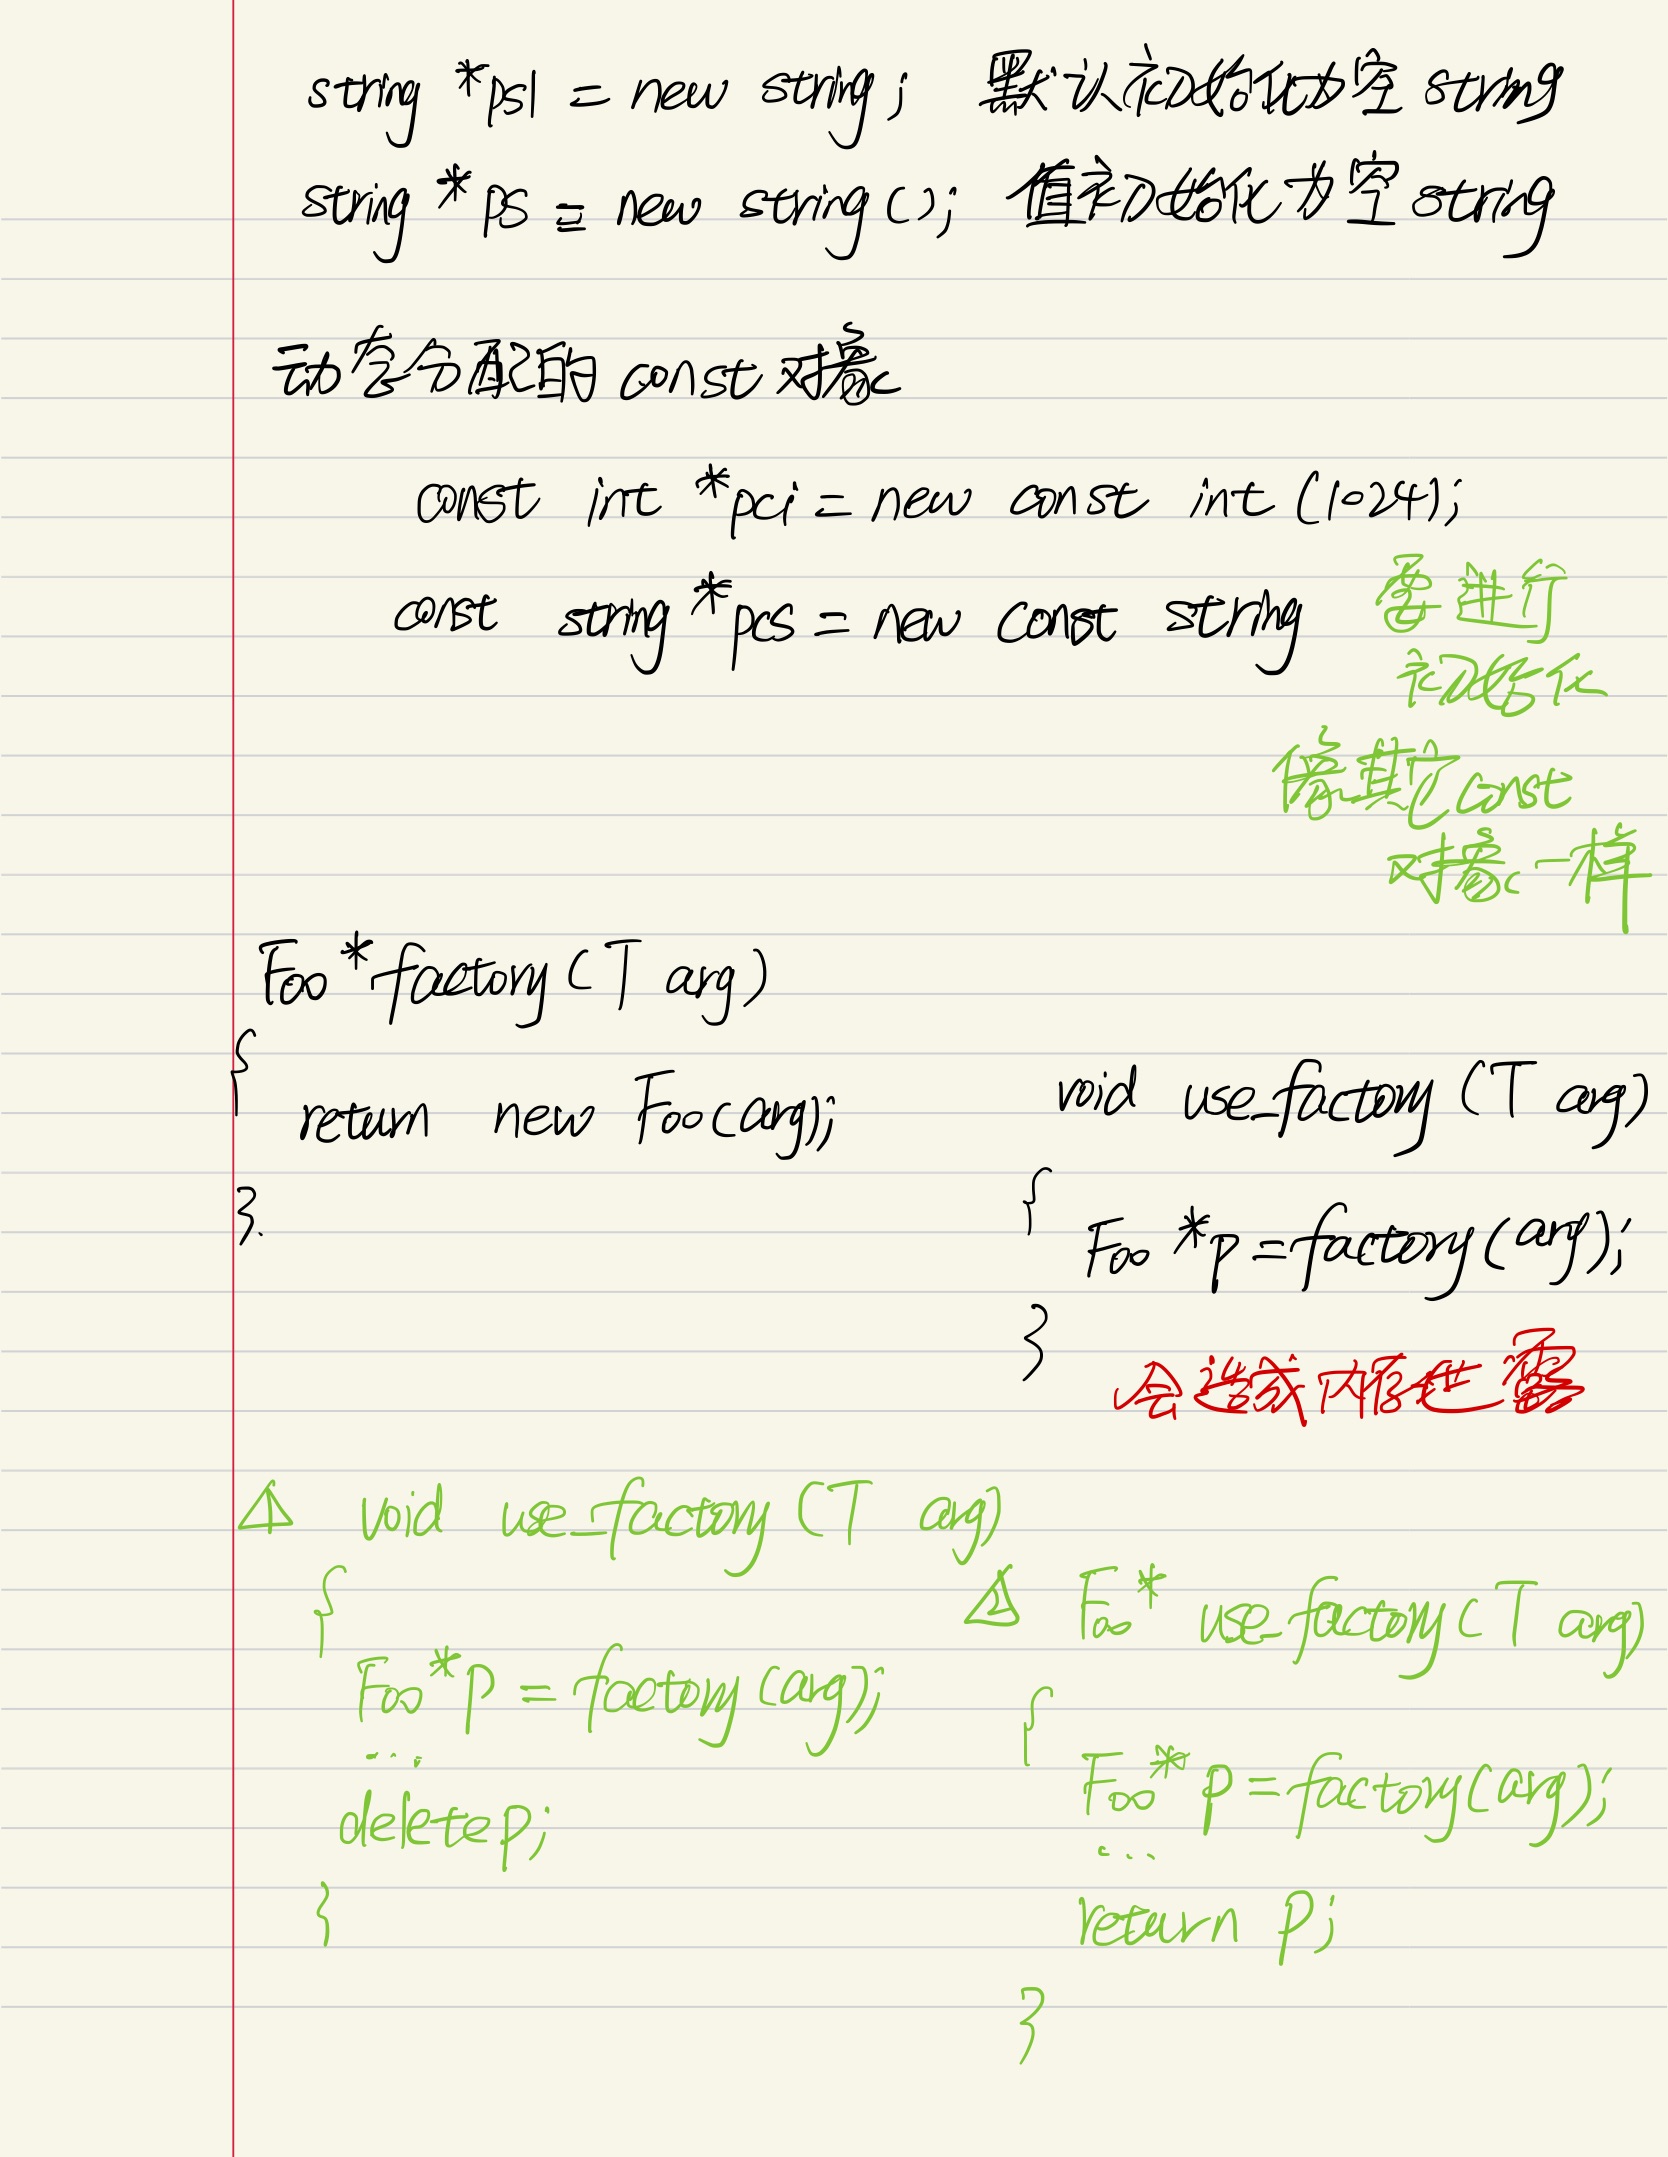 string *ps1 = new string; 默认初始化为空 string
string *ps = new string(); 值初始化为空 string
动态分配的 const 对象
const int *pci = new const int (1024);
const string *pcs = new const string
要进行
初始化
像其它 const
对象一样
Foo *factory (T arg)
{
return new Foo(arg);
}.
void use_factory (T arg)
{
Foo *p = factory(arg);
}
会造成内存泄露
1 void use_factory (T arg)
{
Foo *p = factory(arg);
...
delete p;
}
2 Foo* use_factory (T arg)
{
Foo* p = factory(arg);
...
return p;
}